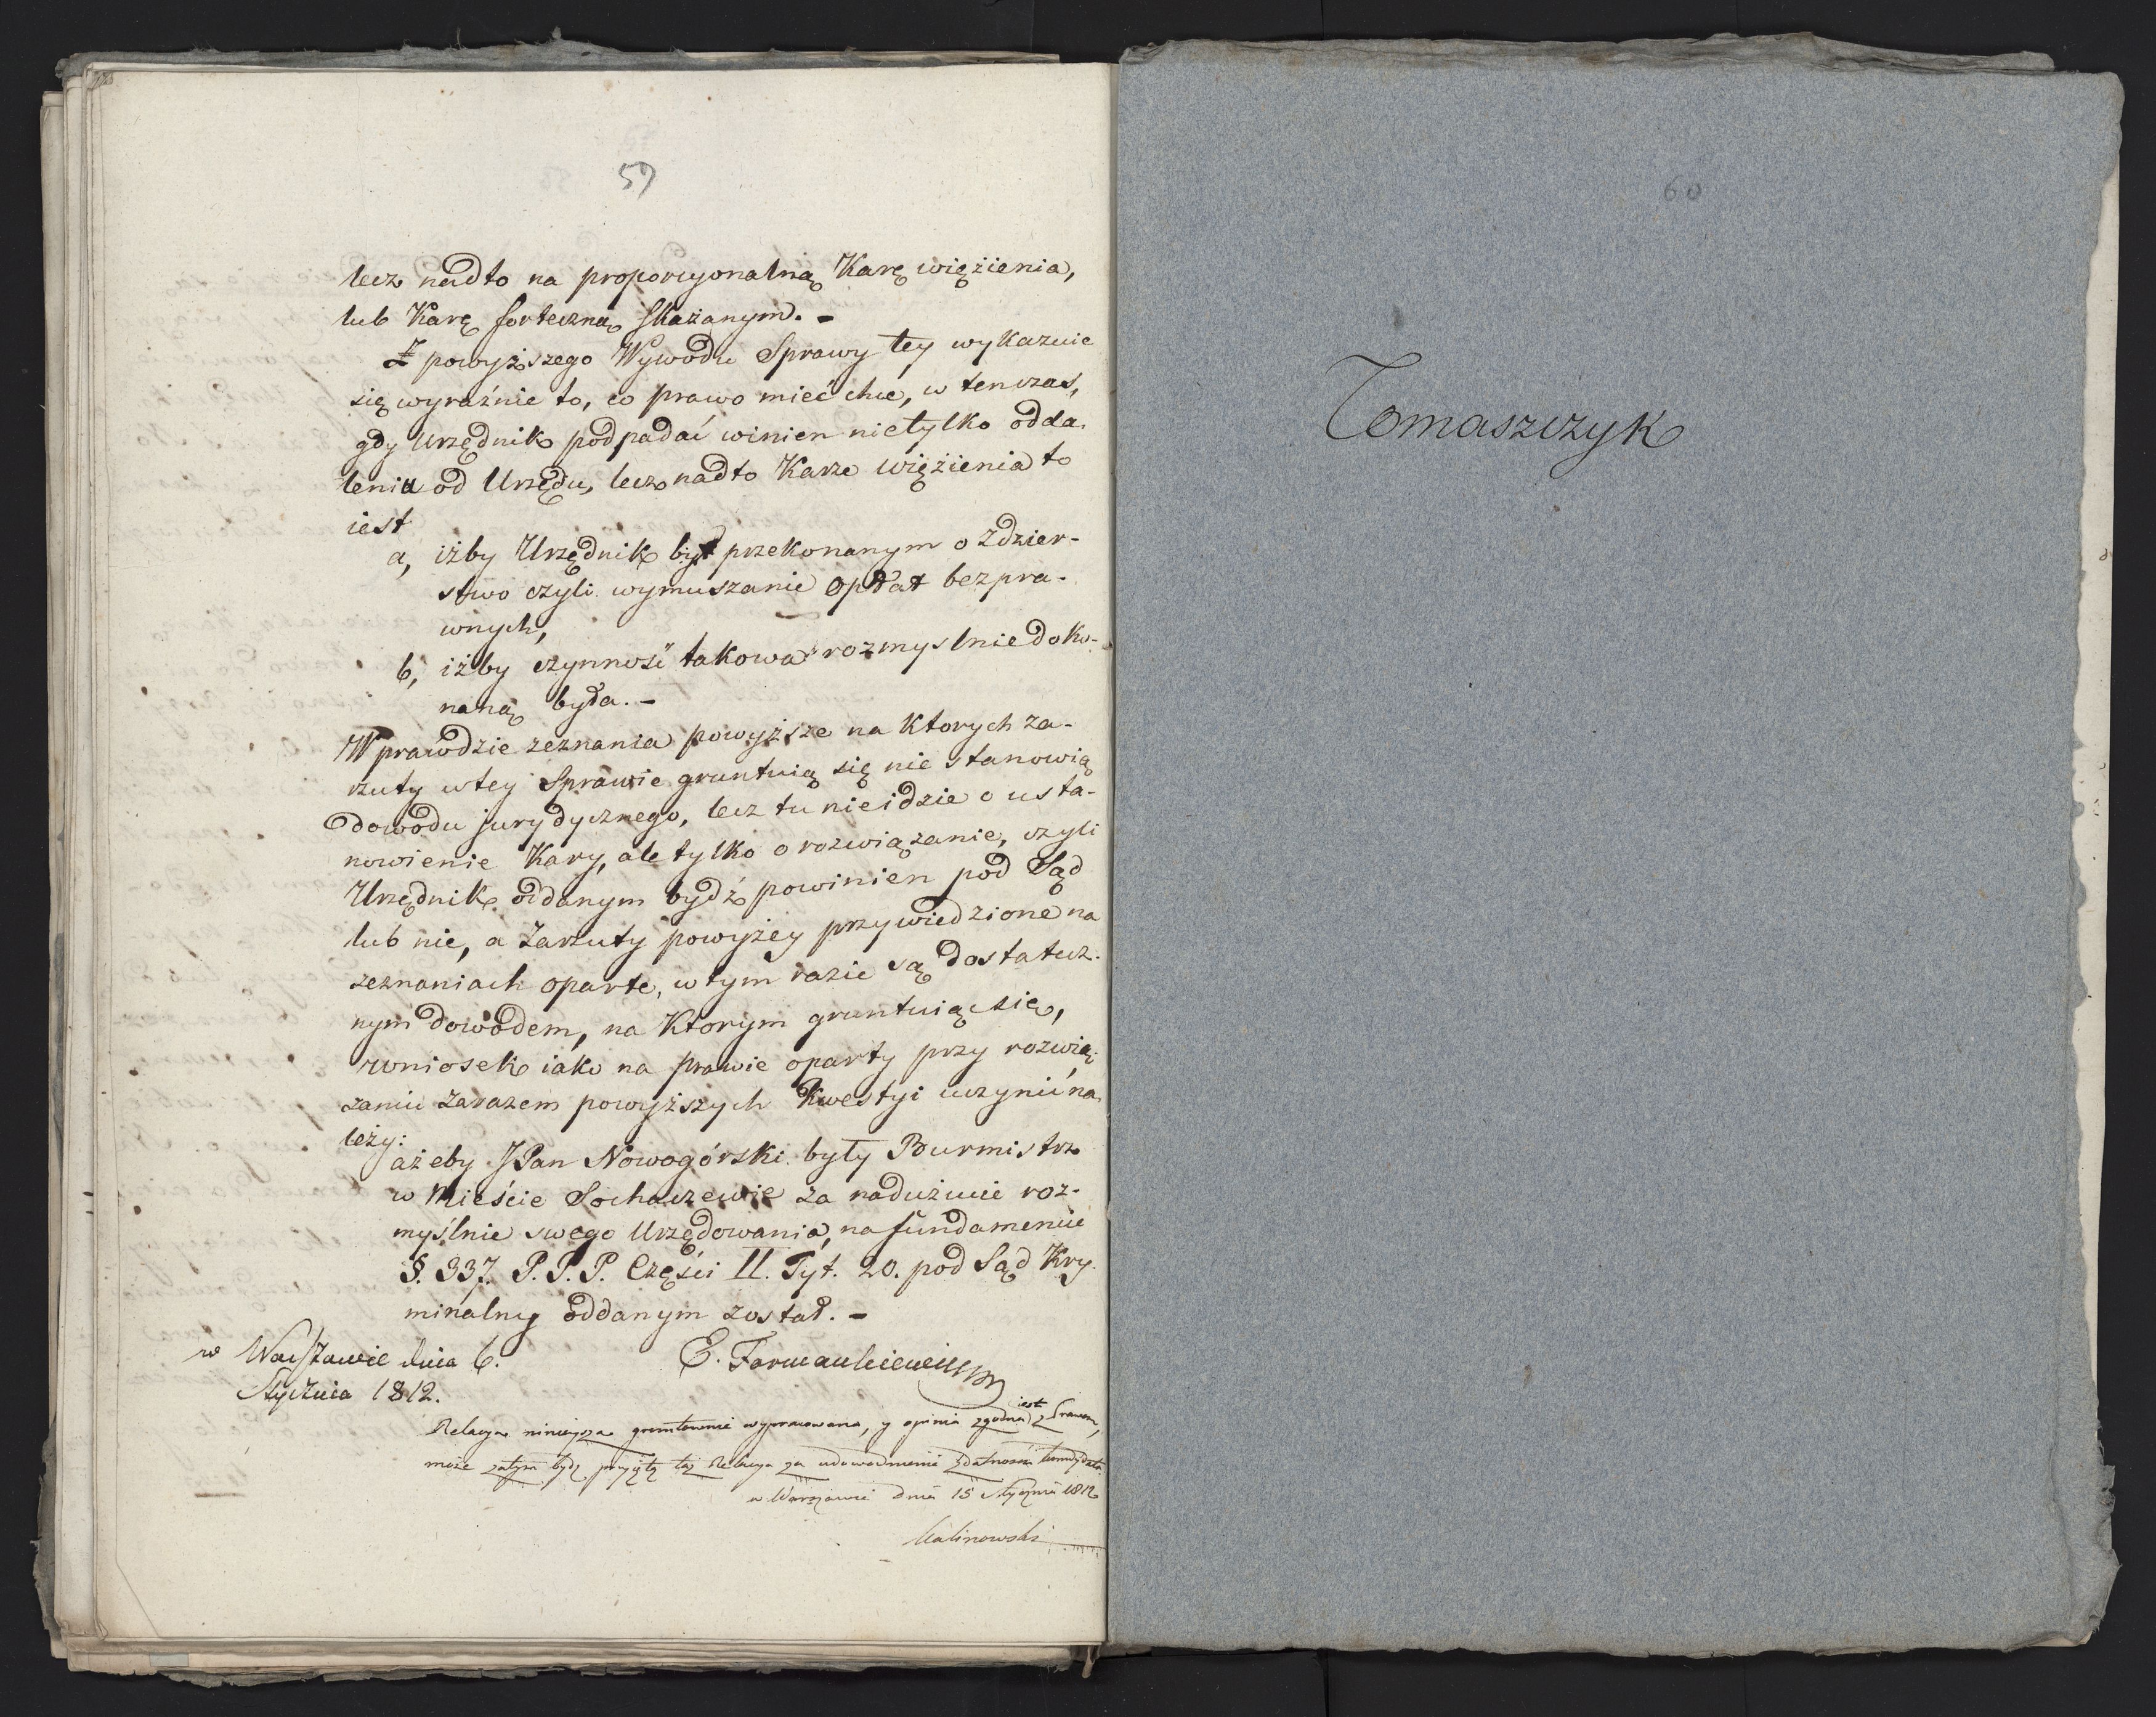 59
lecz nadto na proporcyonalną Karę więżienia,
lub Karę forteczną skazanym. -
Z powyższego Wywodu Sprawy tey wykazuie
się wyraźnie to, co prawo mieć chce, w tenczas,
gdy Urzędnik podpadać winien nietylko odda-
leniu od Urzędu, lecz nadto Karze więżienia to
iest
a, iżby Urzędnik był przekonanym o Zdzier-
stwo czyli wymuszanie opłat bezpra-
wnych,
b, iżby czynność takowa rozmyslnie doko-
naną była. -
Wprawdzie zeznania powyższe na Ktorych za-
rzuty w tey Sprawie gruntuią się nie stanowią
dowodu jurydycznego, lecz tu nie idzie o usta-
nowienie Kary, ale tylko o rozwiązanie, czyli
Urzędnik oddanym bydź powinien pod Sąd
lub nie, a Zarzuty powyżey przywiedzione na
zeznaniach oparte, w tym razie są dostatecz-
nym dowodem, na Ktorym gruntuiąc się,
wniosek iako na prawie oparty przy rozwią-
zaniu Zarazem powyższych Kwestyi uczynić na-
leży:
ażeby JPan Nowogórski były Burmistrz
w Mieście Sochaczewie za nadużycie roz-
myślnie swego Urzędowania, na fundamencie
§. 337. P. P. P. Części II. Tyt. 20. pod Sąd Kry-
minalny oddanym został. -
w Warszawie dnia 6.
Stycznia 1812.
Relacya ninieysza gruntownie wypracowana, y opinia zgodna iest z Prawem,
może zatym bydz przyięta taż Relacya za udowodnienie zdatności kandydata.
w Warszawie dnia 15 Stycznia 1812
Kalinowski
60
Tomaszczyk